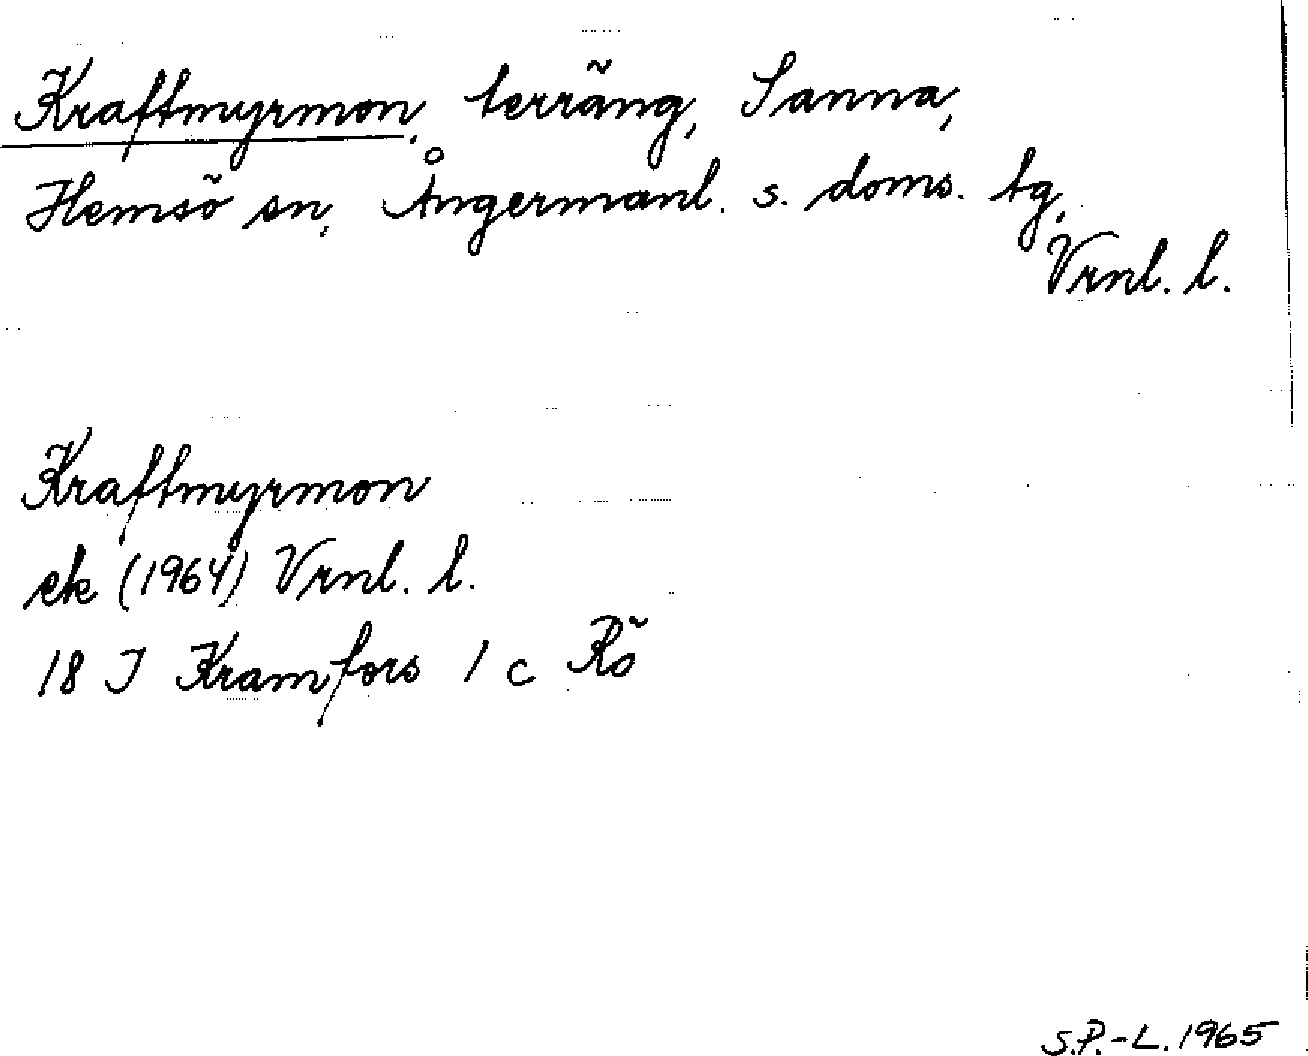 Kraftmyrmon, terräng, Sanna,
Hemsö sn, Ångermanl. s. doms. tg,
Vrnl. l.
Kraftmyrmon
ek (1964) Vrnl. l.
18 I Kramfors 1 c Rö
S.P.-L. 1965